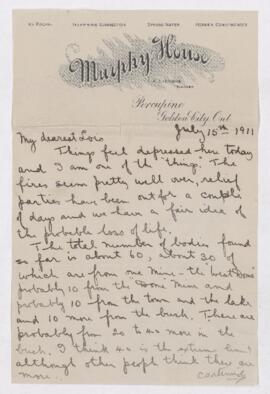 Murphy House
Porcupine
Golden City, Ont.
July 15th 1911
My dearest Lois
Things feel depressed here today
and I am one of the "things." The
fires seem pretty well over, relief
parties have been out for a couple
of days and we have a fair idea of
the probable loss of life.
The total number of bodies found
so far is about 60, about 30 of
which are from one mine - the West Dome
probably 10 from the Dome Mine and
probably 10 from the town and the lake
and 10 more from the bush. There are
probably from 20 to 40 more in the
bush. I think 40 is the extreme limit
although other people think there are
more.